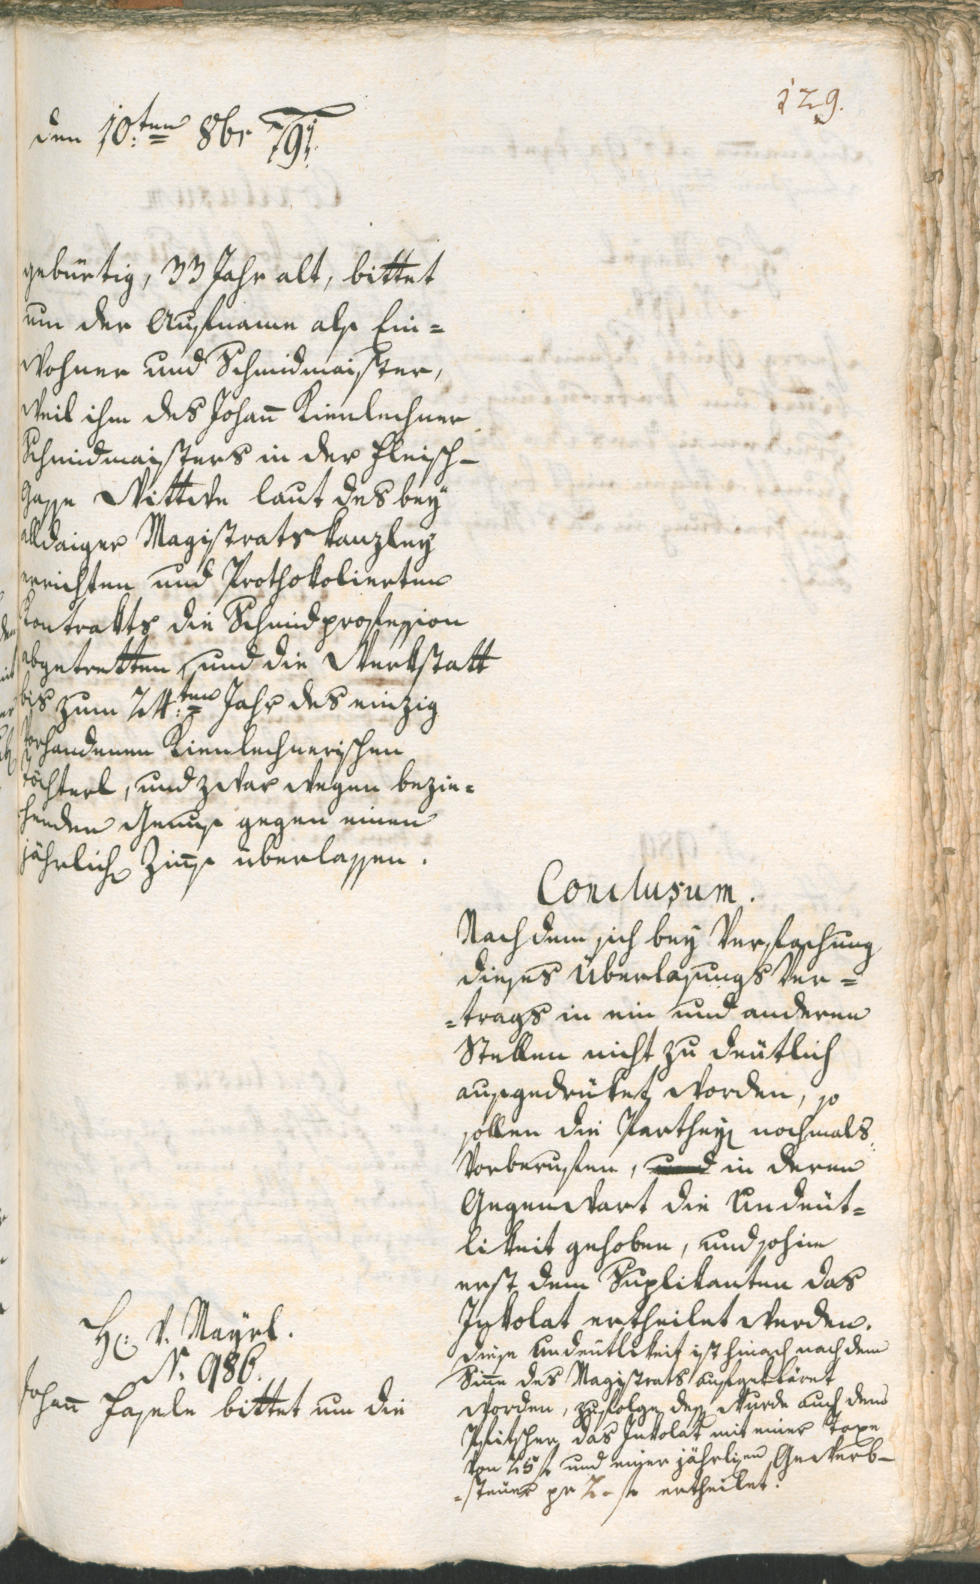 129.
den 10:ten 8br 791.
gebürtig, 33 Jahr alt, bittet
um der Aufname als Ein=
wohner und Schmidmaister,
weil ihm des Johann Kienlechner
Schmidmaisters in der Fleisch-
gasse Wittwe laut des bey
alldaiger Magistratskanzley
errichten und Prothokolierten
Kontrakts die Schmidprofession
abgetretten, und die Werkstatt
bis zum 24:ten Jahr des einzig
vorhandenen Kienlechnerischen
Töchterl, und zwar wegen bezie=
henden Genuß gegen einen
jährlich Zinß überlassen.
Conclusum.
Nachdem sich bey Verfachung
dieses Überlasungs Ver=
=trags in ein und anderen
Stellen nicht zu deutlich
ausgedrüket worden, so
sollen die Parthey nochmals
Vorberuffen, und in deren
Gegenwart die Undeut=
likeit gehoben, und sohin
erst dem Suplikanten das
Inkolat ertheilet werden.
Diese Undeutlikeit ist hinach nach dem
Sinne des Magistrats aufgekläret
worden, zufolge deß wurde auch dem
Pfitscher das Inkolat mit einer Taxe
von 25 f und einer jährligen Gewerb-
=steuer pr 2 f ertheilet.
H: v. Mayrl.
N. 986.
Johann Fasele bittet um die